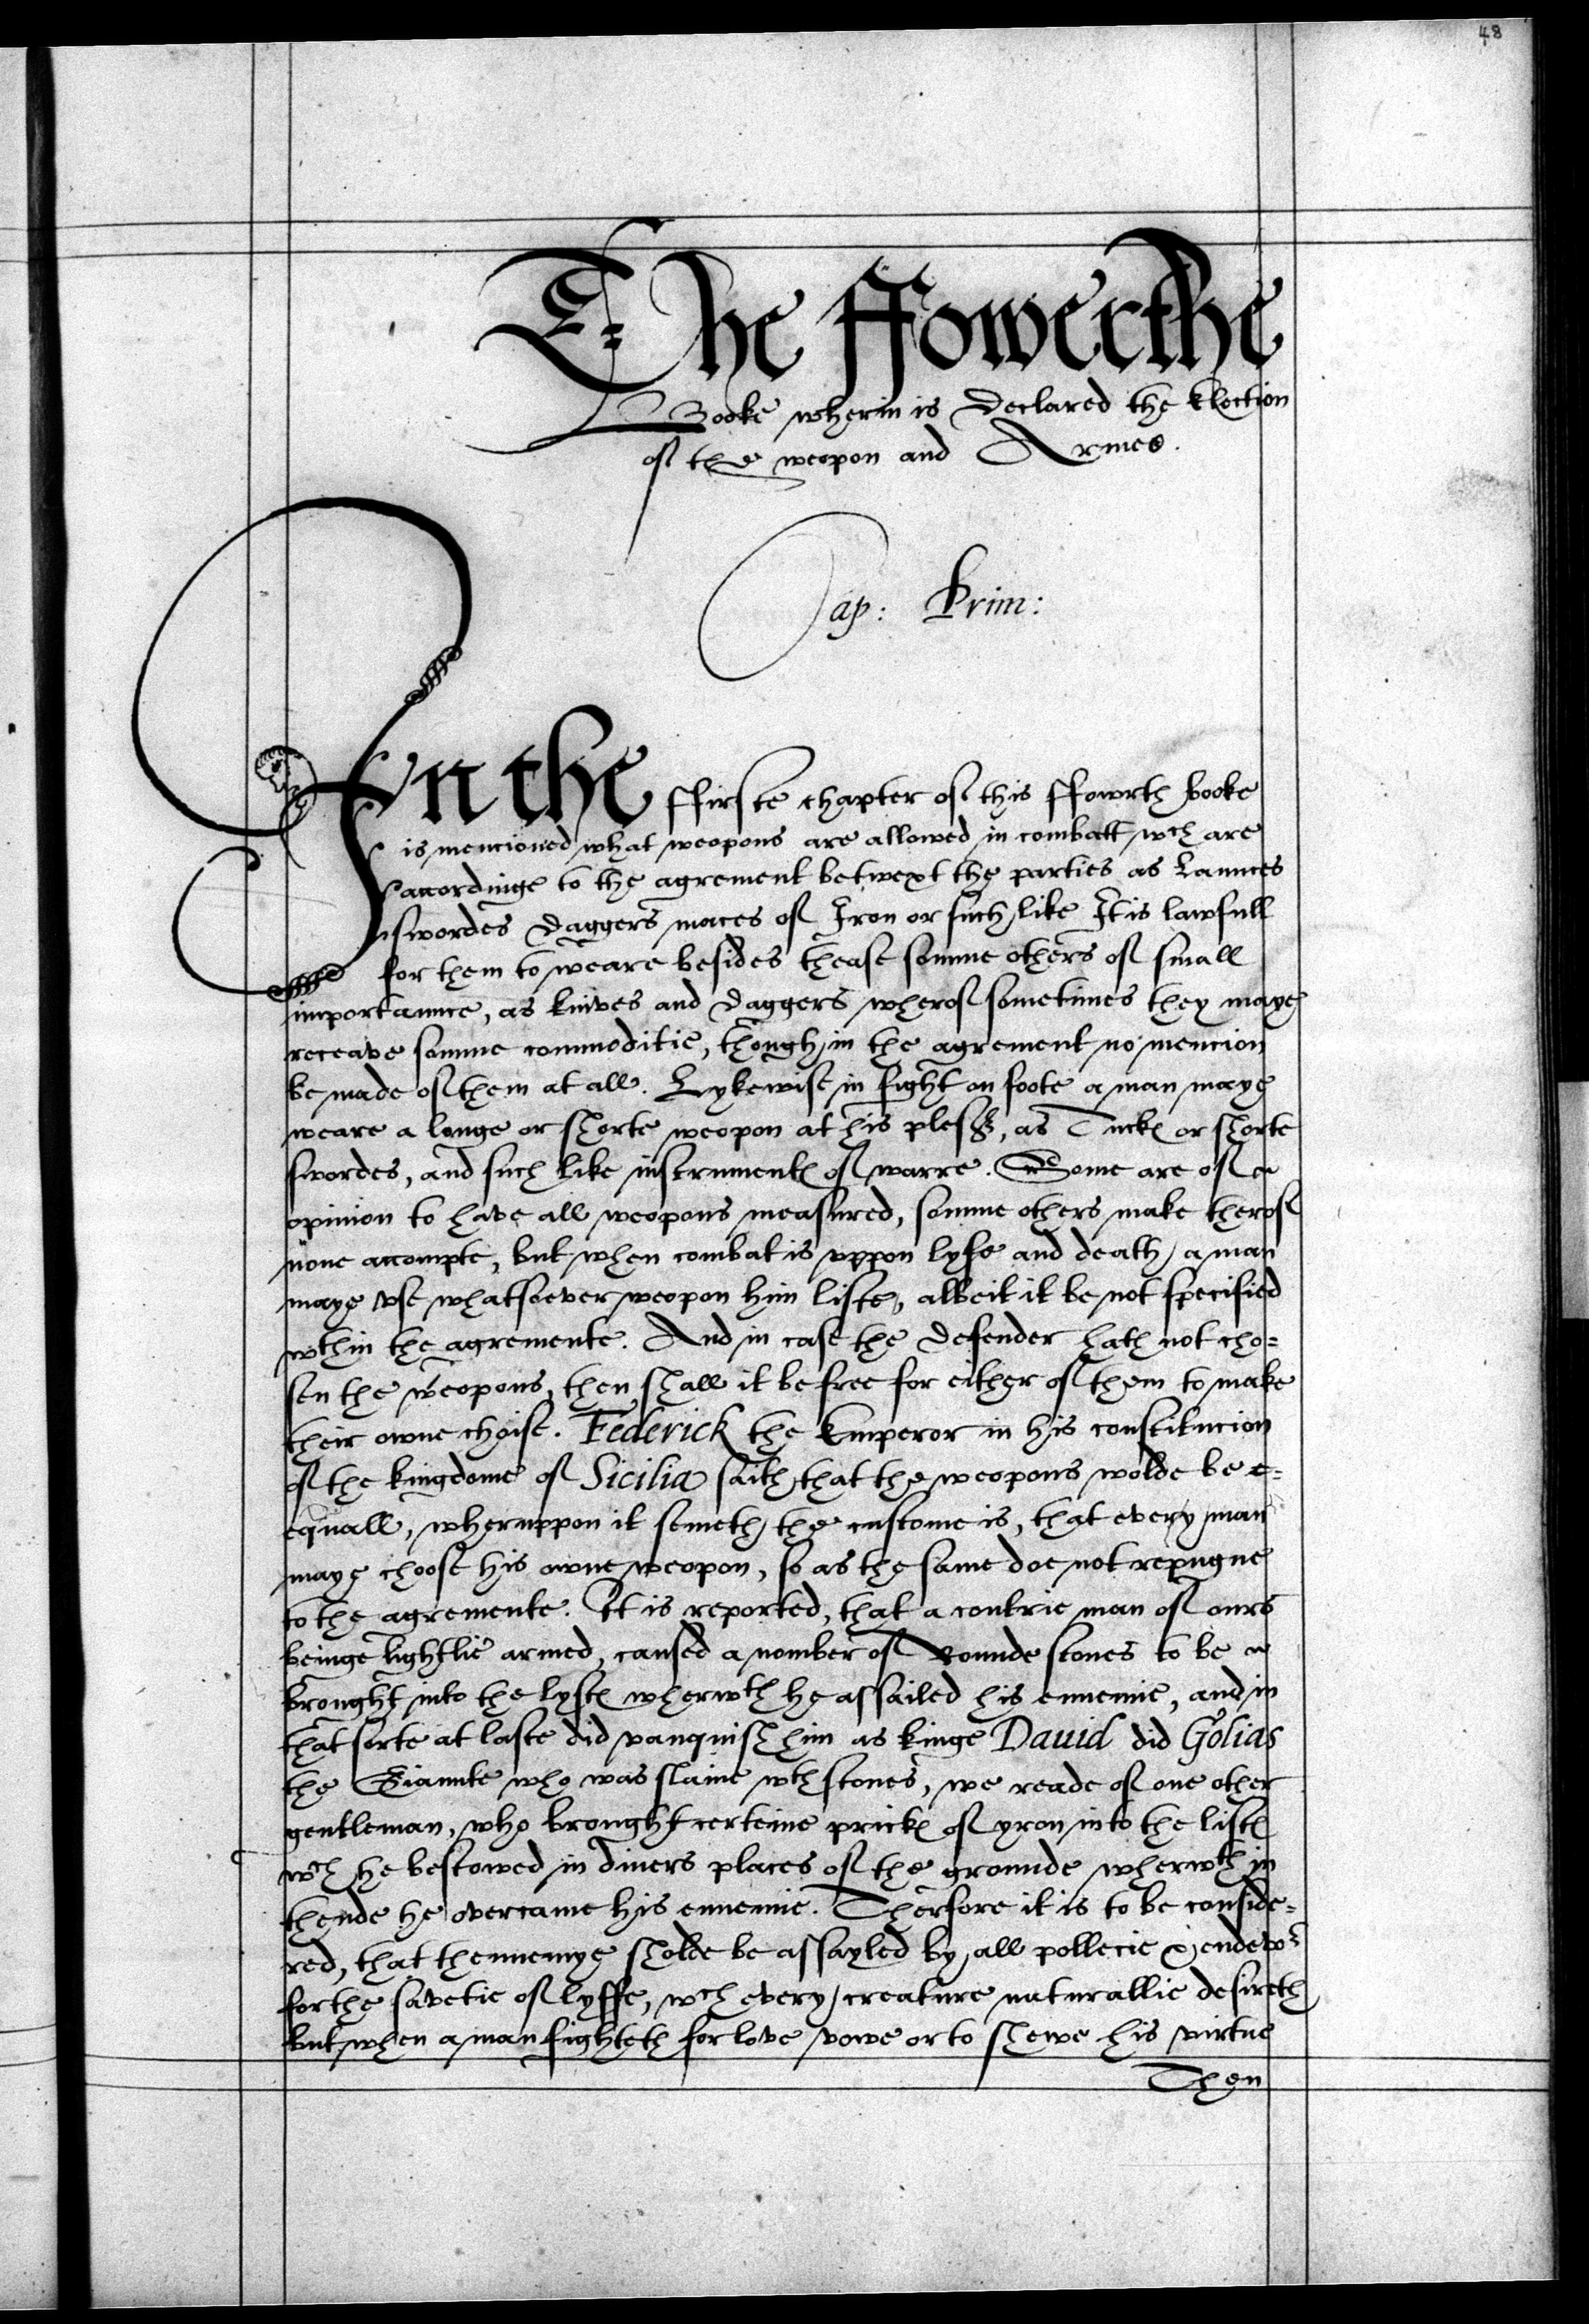 48
The ffowerthe
Booke wherin is declared the Election
of the weopon and Armes.
Cap: Prim:
In the ffirste chapter of this ffowrth booke
is mencioned what weopons are allowed in combatt, wch are
accordinge to the agrement betwext the parties as Launces
swordes daggers maces of Iron or such like It is lawfull
for them to weare besides thease somme others of small
importaunce, as knives and daggers wherof sometimes they maye
receave somme commoditie, though in the agrement no mencion
be made of them at all. Lykewise in fight on foote a man maye
weare a longe or shorte weopon at his plesr, as Tuckes or shorte
swordes, and such like instrumentes of warre. Some are of
opinion to have all weopons measured, somme others make therof
none accompte, but when combat is vppon lyfe and death, a man
maye vse whatsoever weopon him liste, albeit it be not specified
wthin the agremente. And in case the defender hath not cho=
sen the weopons, then shall it be free for either of them to make
their owne choise. Federick the Emperor in his constitucion
of the kingdome of Sicilia saith that the weopons wolde be e=
equall, wheruppon it semeth the custome is, that every man
maye choose his owne weopon, so as the same doe not repugne
to the agremente. It is reported, that a contrie man of ours
beinge lightlie armed, caused a nomber of Rounde stones to be
brought into the lystes wherwth he assailed his ennemie, and in
that sorte at laste did vanquish him as kinge Dauid did Golias
the Giaunte who was slaine wth stones, we reade of one other
gentleman, who brought certeine prickes of yron into the listes
wch he bestowed in diuers places of the grounde wherwth in
thende he overcame his ennemie. Therfore it is to be conside=
red, that thennemye sholde be assayled by all pollecie & endewr
for the savetie of lyffe, wch every creature naturallie desireth
but when a man fighteth for love vowe or to shewe his virtue
Then